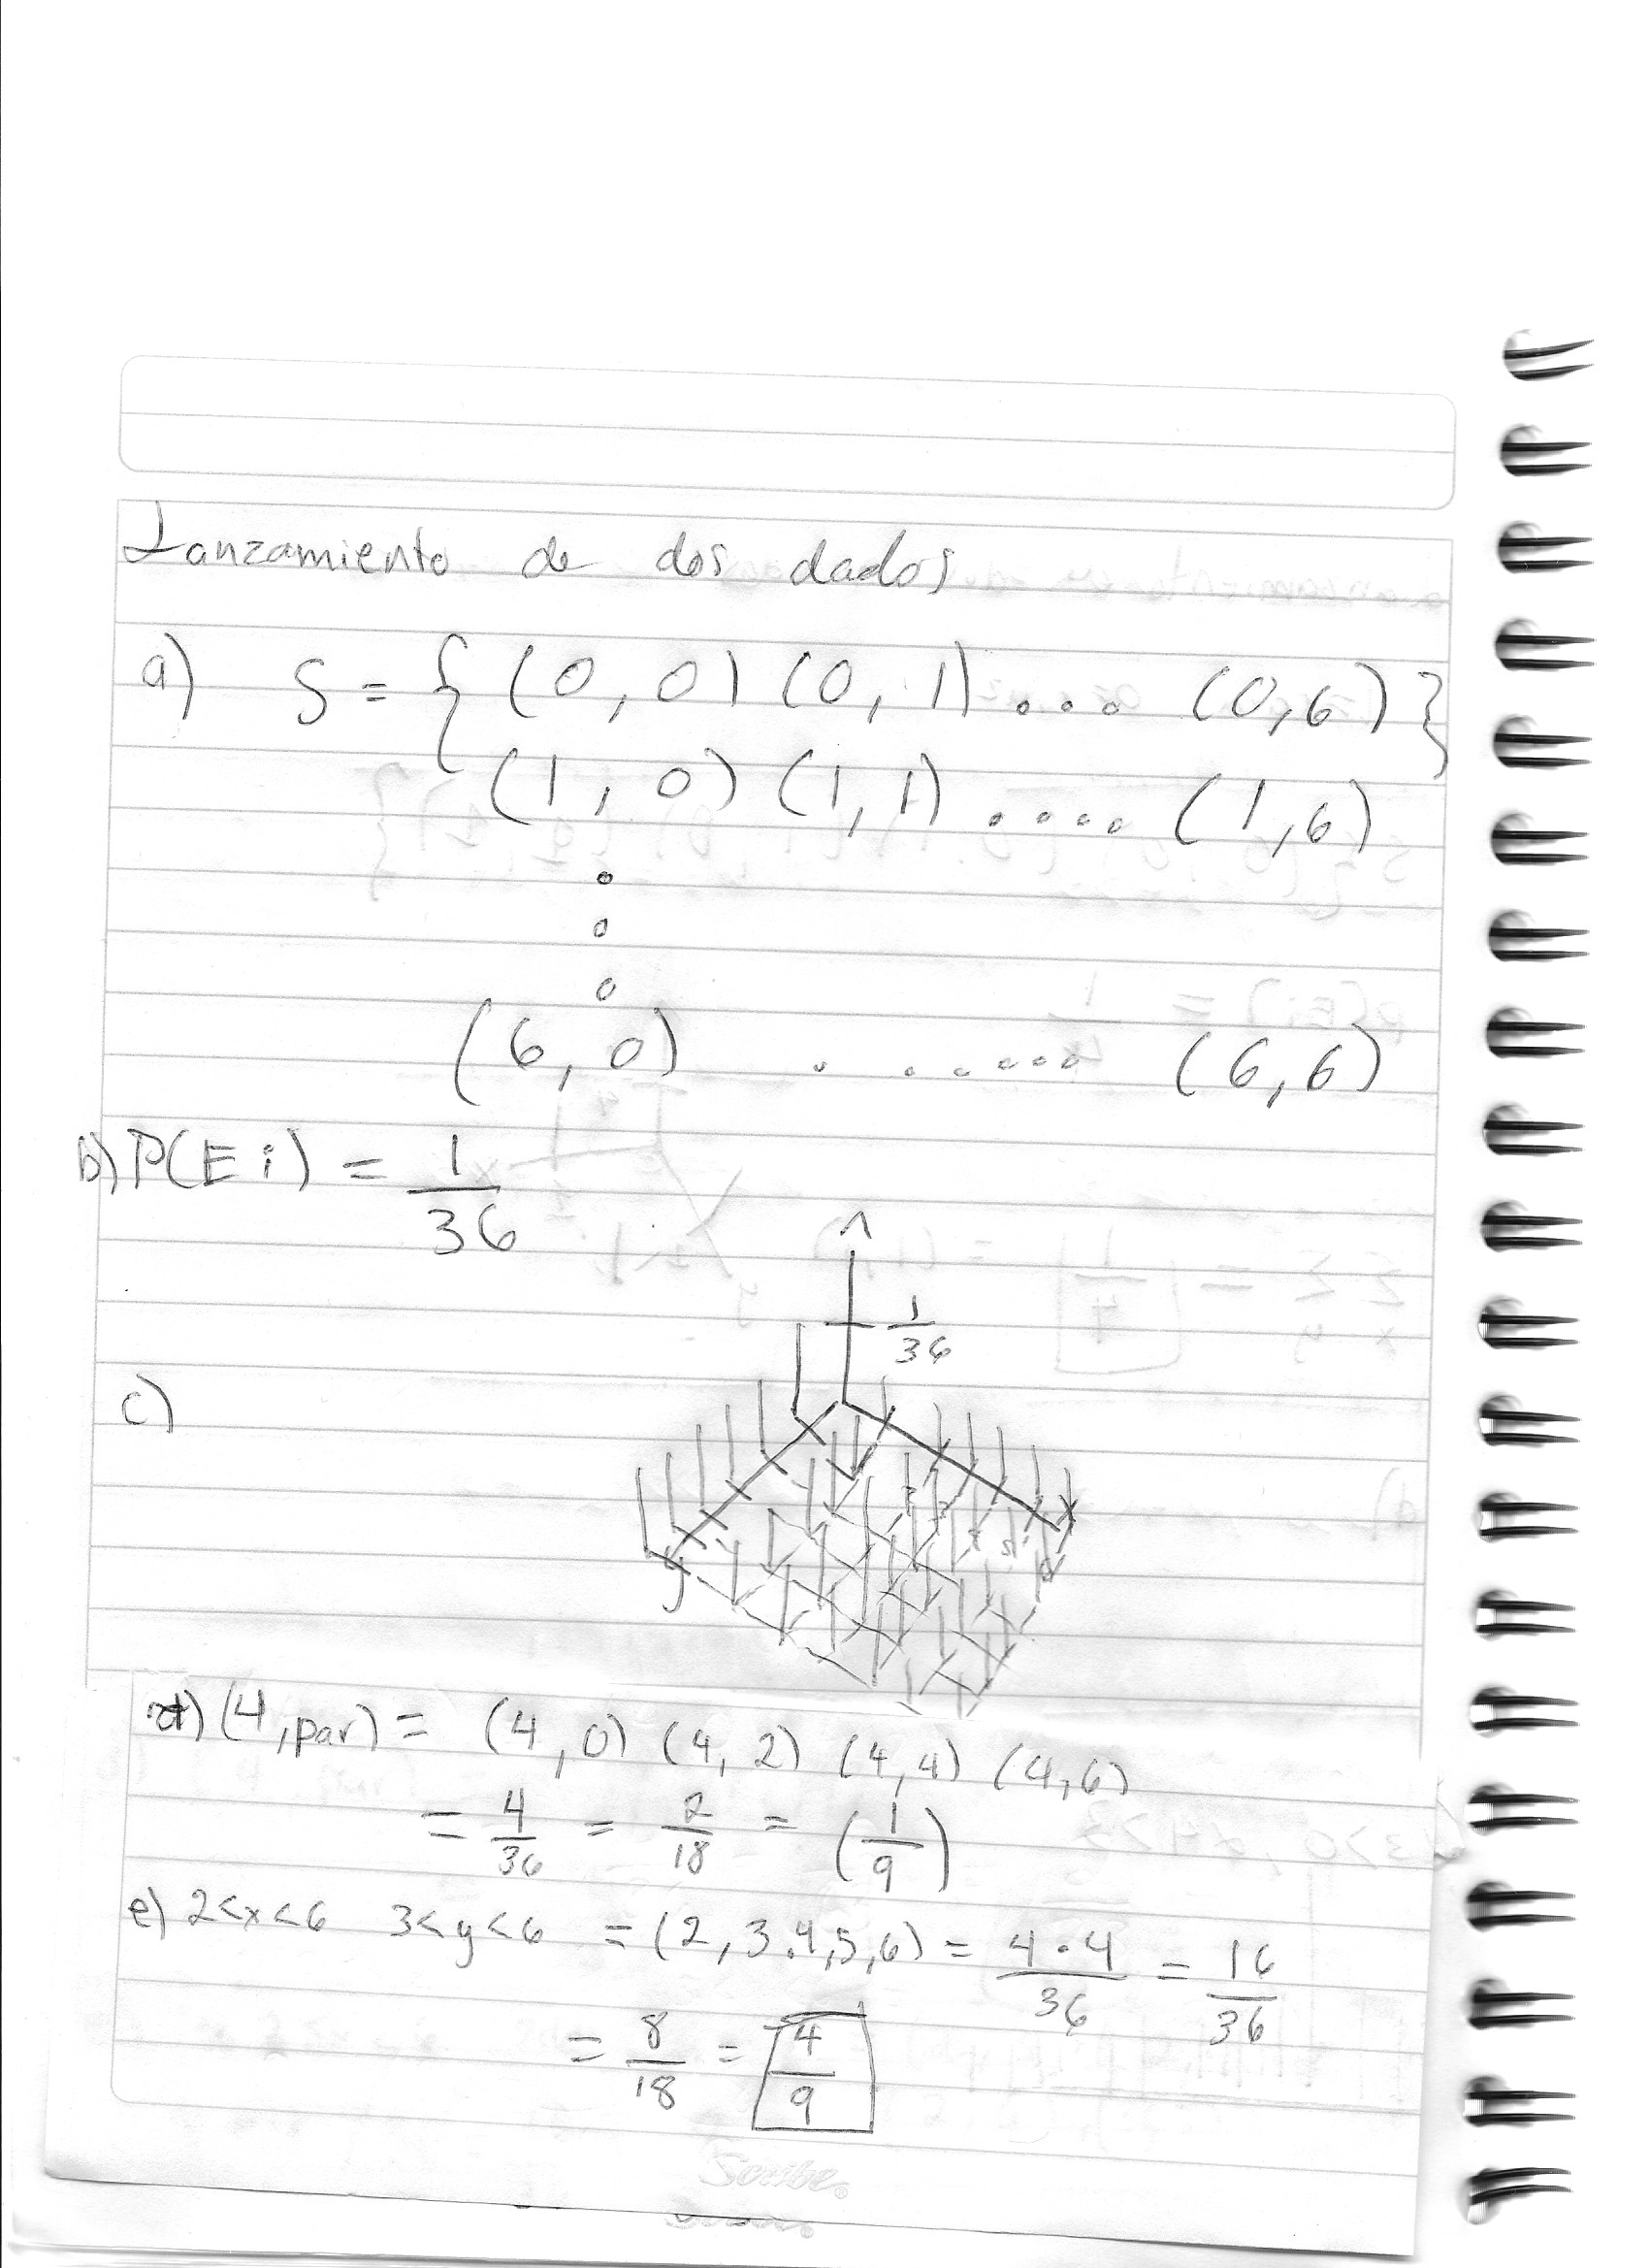 Lanzamiento de dos dados
a) S = { (0,0) (0,1) ... (0,6) }
(1,0) (1,1) .... (1,6)
(6,0) . ...... (6,6)
b) P(Ei) = 1/36
1/36
c)
x
y
d) (4,par) = (4,0) (4,2) (4,4) (4,6)
= 4/36 = 2/18 = (1/9)
e) 2<x<6 3<y<6 = (2,3,4,5,6) = 4·4/36 = 16/36
= 8/18 = 4/9
Scribe